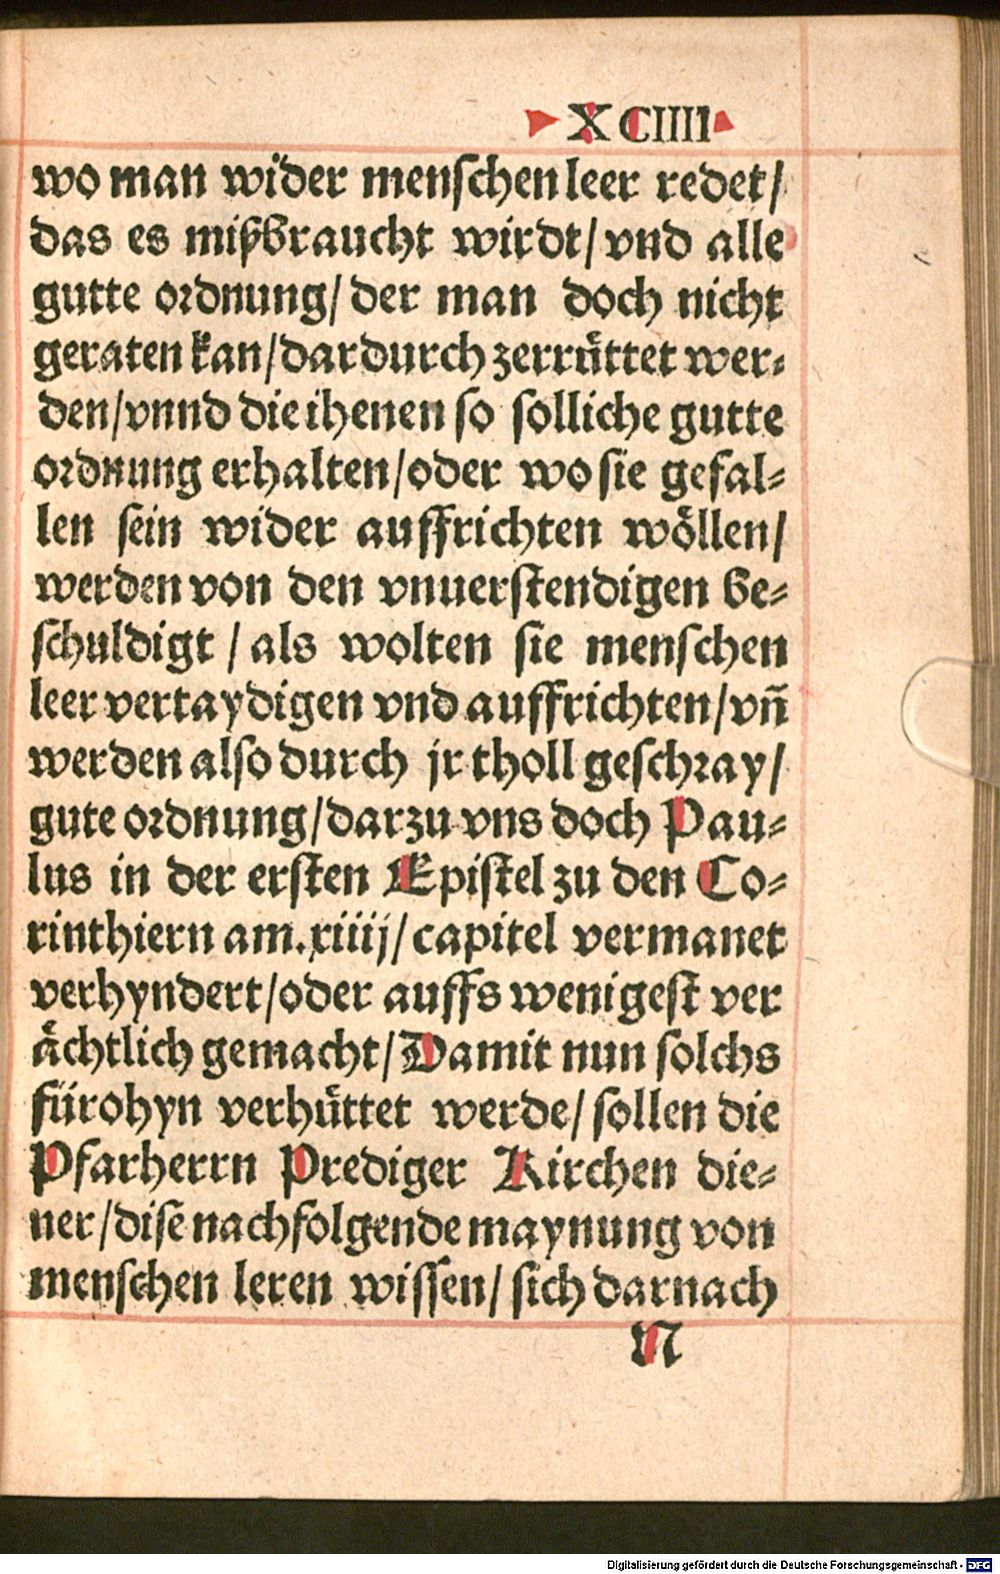 XCIIII
wo man wider menschen leer redet/
das es mißbraucht wirdt/vnd alle
gutte ordnung/der man doch nicht
geraten kan/dardurch zerruͤttet wer⸗
den/vnnd die ihenen so solliche gutte
ordnung erhalten/oder wo sie gefal⸗
len sein wider auffrichten woͤllen/
werden von den vnuerstendigen be⸗
schuldigt / als wolten sie menschen
leer vertaydigen vnd auffrichten/vñ
werden also durch jr tholl geschray/
gute ordnung/darzu vns doch Pau⸗
lus in der ersten Epistel zu den Co⸗
rinthiern am.xiiij/capitel vermanet
verhyndert/oder auffs wenigest ver
aͤchtlich gemacht/Damit nun solchs
fürohyn verhuͤttet werde/sollen die
Pfarherrn Prediger Kirchen die⸗
ner/dise nachfolgende maynung von
menschen leren wissen/sich darnach
N
Digitalisierung gefördert durch die Deutsche Forschungsgemeinschaft - DFG